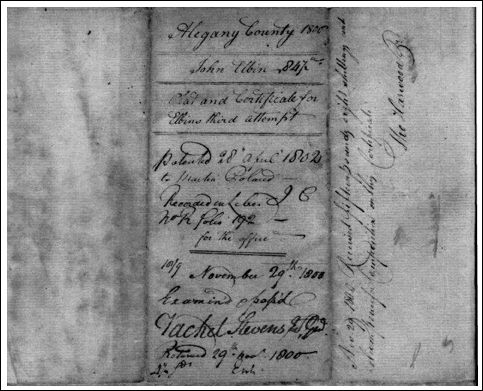 Alegany County 1800
John Elbin 84½ as
Plat and Certificate for
Elbins third attempt
Patented 28th April 1802
to Martin Poland —
Recorded in Liber I C
No R folio 192 —
for the office —
November 29th 1800
Examind & passd
Vachel Stevens
Returned 29th Novr 1800
Nov 29 1800 Received fifteen pounds eight shillings and
Composition on this Certificate
Tho Harwood